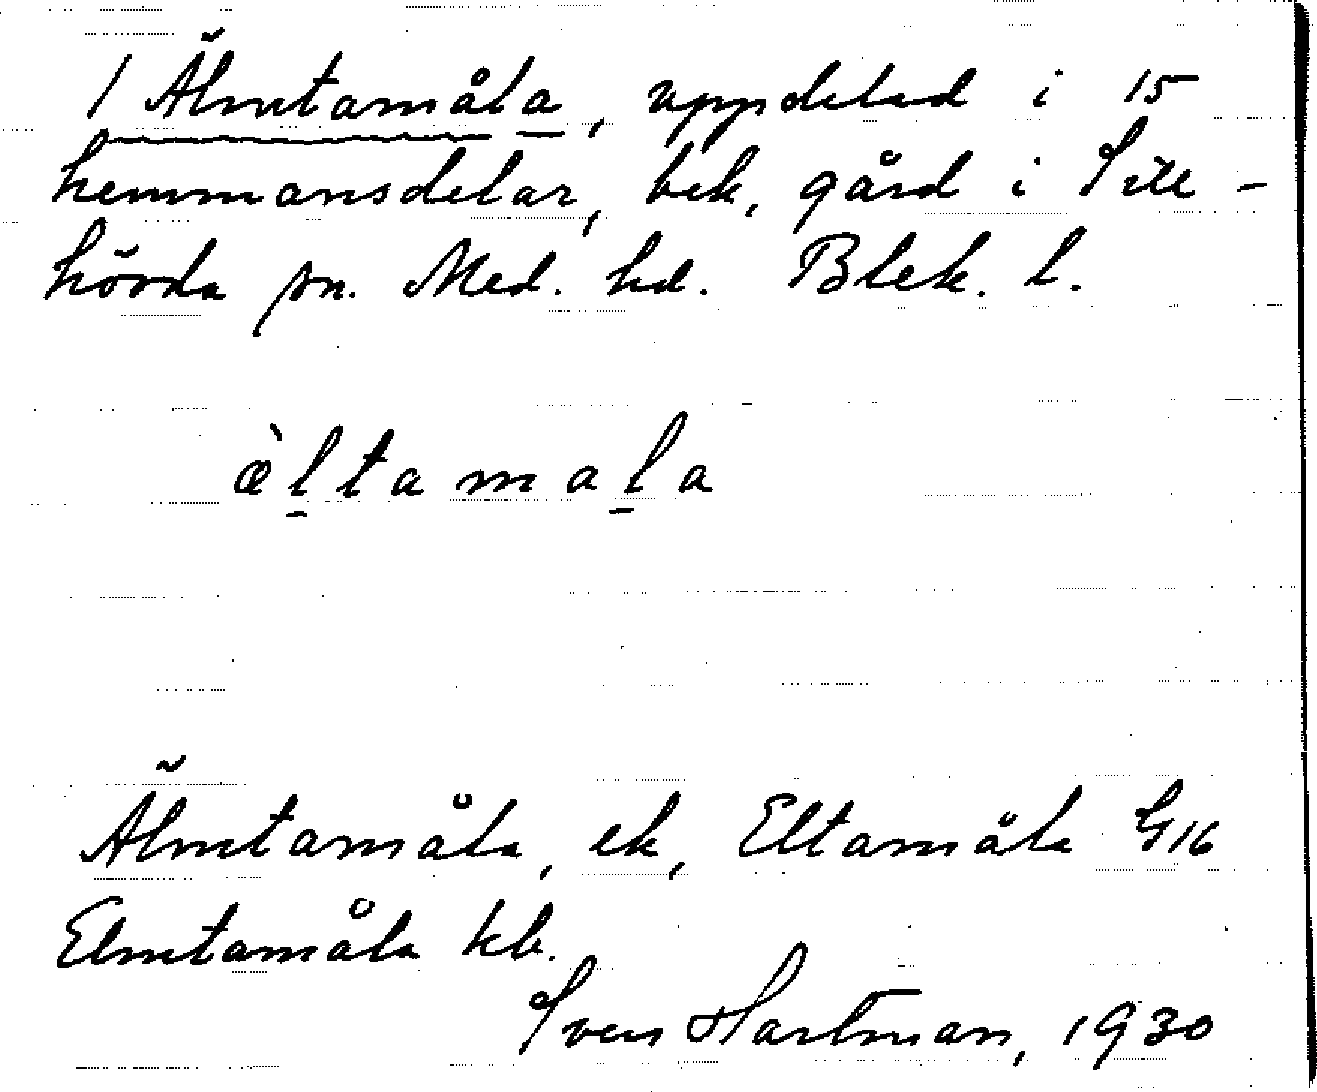 1 Älmtamåla, uppdelad i 15
hemmansdelar, bek, gård i Sill-
hövda sn. Med. hd. Blek. l.
æ̀ḻtamaḻa
Älmtamåla, ek, Eltamåla G16
Elmtamåla kb.
Sven Hartman, 1930